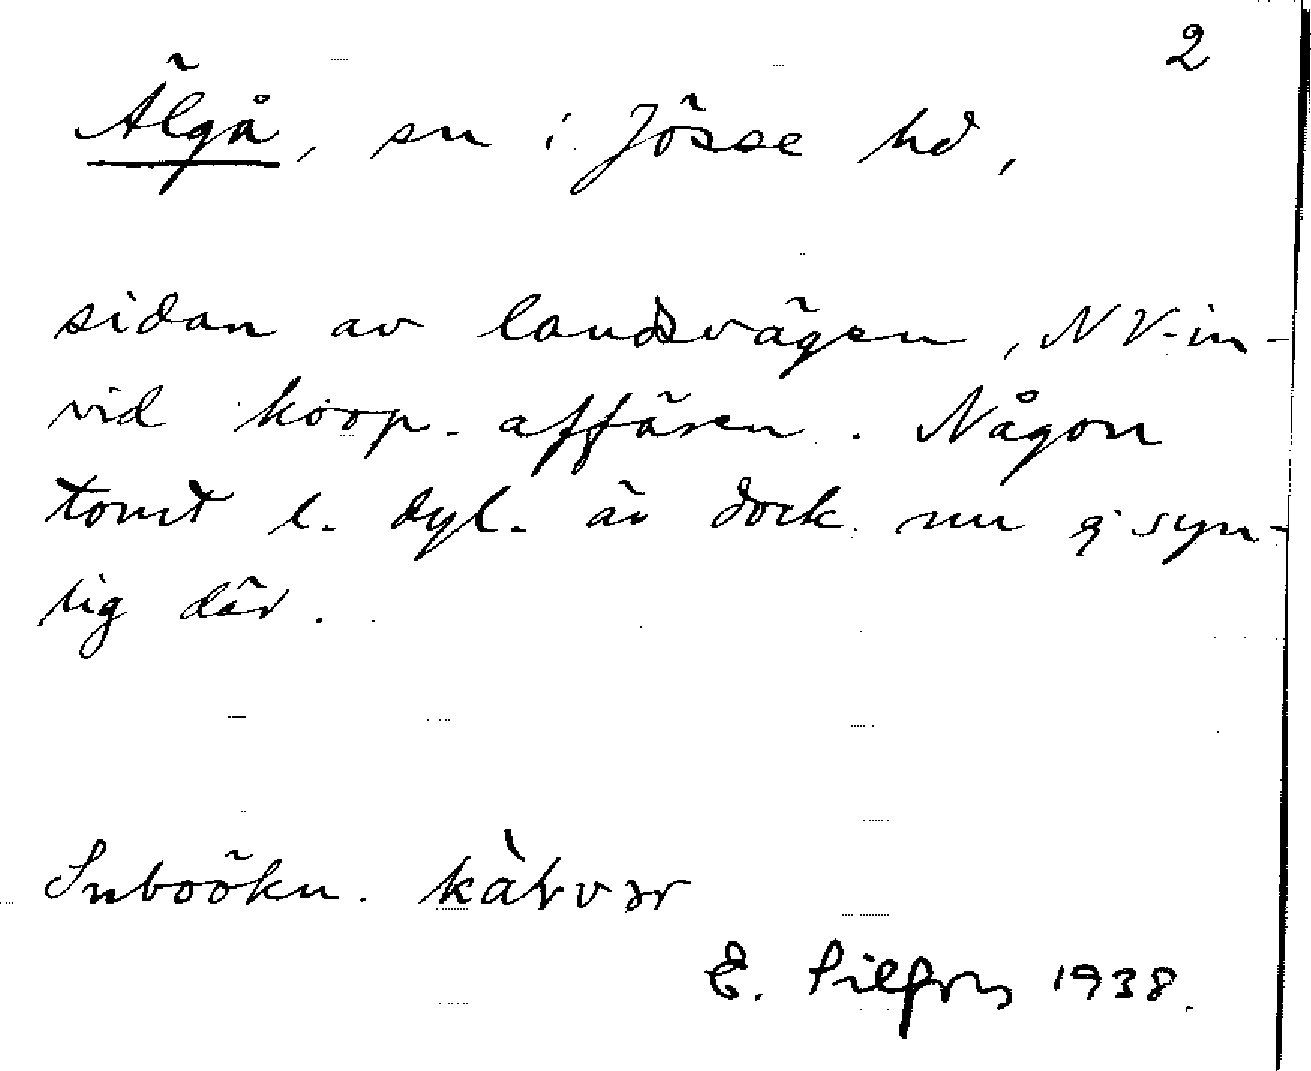 2
Älgå, sn i Jösse hd,
sidan av landsvägen, NV-in-
vid koop. affären. Någon
tomt l. dyl. är dock nu ej syn-
lig där.
Inboökn.
E. 1938.